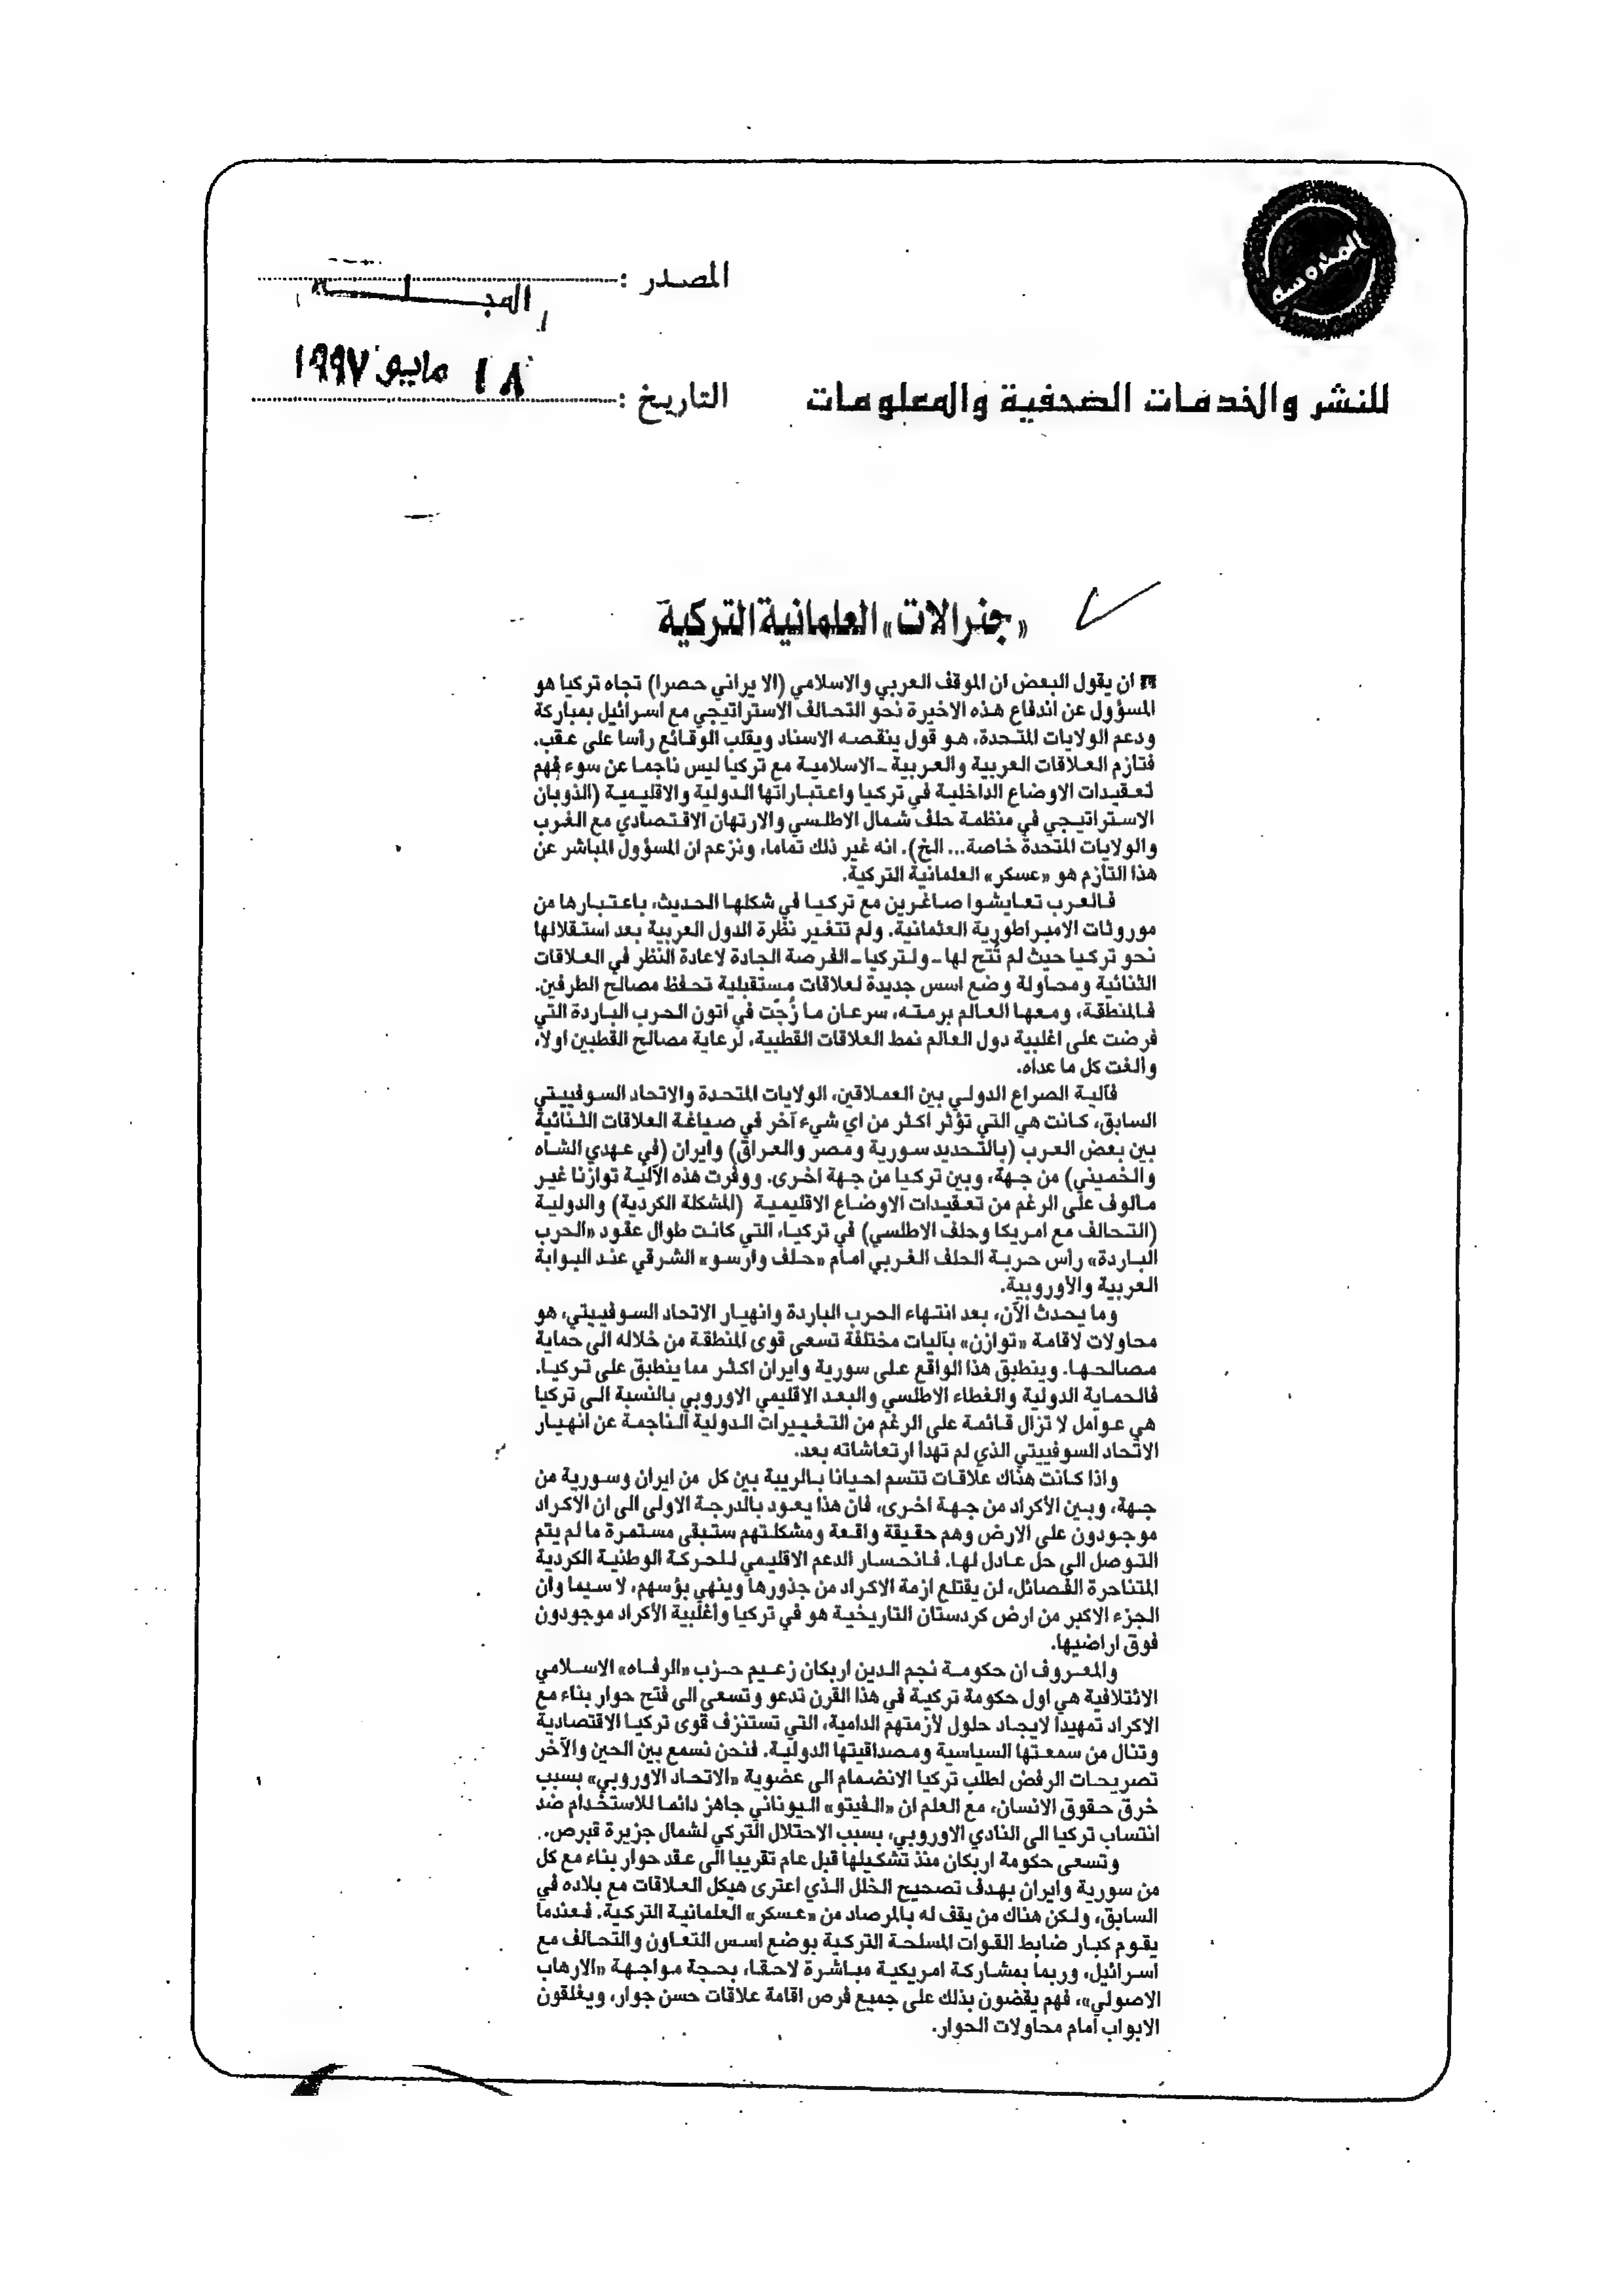 المحروسة
المصدر :
المجلة
للنشر والخدمات الصحفية والمعلومات
التاريخ :
١٨ مايو ١٩٩٧
«جنرالات» العلمانية التركية
ان يقول البعض ان الموقف العربي والاسلامي (الايراني حصرا) تجاه تركيا هو
المسؤول عن اندفاع هذه الاخيرة نحو التحالف الاستراتيجي مع اسرائيل بمباركة
ودعم الولايات المتحدة، هو قول ينقصه الاسناد ويقلب الوقائع رأسا على عقب.
فتازم العلاقات العربية والعربية ـ الاسلامية مع تركيا ليس ناجما عن سوء فهم
لتعقيدات الاوضاع الداخلية في تركيا واعتباراتها الدولية والاقليمية (الذوبان
الاستراتيجي في منظمة حلف شمال الاطلسي والارتهان الاقتصادي مع الغرب
والولايات المتحدة خاصة... الخ). انه غير ذلك تماما، ونزعم ان المسؤول المباشر عن
هذا التأزم هو «عسكر» العلمانية التركية.
فالعرب تعايشوا صاغرين مع تركيا في شكلها الحديث، باعتبارها من
موروثات الامبراطورية العثمانية. ولم تتغير نظرة الدول العربية بعد استقلالها
نحو تركيا حيث لم تُتح لها ـ ولتركيا ـ الفرصة الجادة لاعادة النظر في العلاقات
الثنائية ومحاولة وضع اسس جديدة لعلاقات مستقبلية تحفظ مصالح الطرفين.
فالمنطقة، ومعها العالم برمته، سرعان ما زُجّت في اتون الحرب الباردة التي
فرضت على اغلبية دول العالم نمط العلاقات القطبية، لرعاية مصالح القطبين اولا،
والغت كل ما عداه.
فآلية الصراع الدولي بين العملاقين، الولايات المتحدة والاتحاد السوفييتي
السابق، كانت هي التي تؤثر اكثر من اي شيء آخر في صياغة العلاقات الثنائية
بين بعض العرب (بالتحديد سورية ومصر والعراق) وايران (في عهدي الشاه
والخميني) من جهة، وبين تركيا من جهة اخرى. ووفرت هذه الآلية توازنا غير
مالوف على الرغم من تعقيدات الاوضاع الاقليمية (المشكلة الكردية) والدولية
(التحالف مع امريكا وحلف الاطلسي) في تركيا، التي كانت طوال عقود «الحرب
الباردة» رأس حربة الحلف الغربي امام «حلف وارسو» الشرقي عند البوابة
العربية والأوروبية.
وما يحدث الآن، بعد انتهاء الحرب الباردة وانهيار الاتحاد السوفييتي، هو
محاولات لاقامة «توازن» بآليات مختلفة تسعى قوى المنطقة من خلاله الى حماية
مصالحها. وينطبق هذا الواقع على سورية وايران اكثر مما ينطبق على تركيا.
فالحماية الدولية والغطاء الاطلسي والبعد الاقليمي الاوروبي بالنسبة الى تركيا
هي عوامل لا تزال قائمة على الرغم من التغييرات الدولية الناجمة عن انهيار
الاتحاد السوفييتي الذي لم تهدأ ارتعاشاته بعد.
واذا كانت هناك علاقات تتسم احيانا بالريبة بين كل من ايران وسورية من
جهة، وبين الأكراد من جهة اخرى، فان هذا يعود بالدرجة الاولى الى ان الاكراد
موجودون على الارض وهم حقيقة واقعة ومشكلتهم ستبقى مستمرة ما لم يتم
التوصل الى حل عادل لها. فانحسار الدعم الاقليمي للحركة الوطنية الكردية
المتناحرة الفصائل، لن يقتلع ازمة الاكراد من جذورها وينهي بؤسهم، لا سيما وان
الجزء الاكبر من ارض كردستان التاريخية هو في تركيا وأغلبية الأكراد موجودون
فوق اراضيها.
والمعروف ان حكومة نجم الدين اربكان زعيم حزب «الرفاه» الاسلامي
الائتلافية هي اول حكومة تركية في هذا القرن تدعو وتسعى الى فتح حوار بناء مع
الاكراد تمهيدا لايجاد حلول لأزمتهم الدامية، التي تستنزف قوى تركيا الاقتصادية
وتنال من سمعتها السياسية ومصداقيتها الدولية. فنحن نسمع بين الحين والآخر
تصريحات الرفض لطلب تركيا الانضمام الى عضوية «الاتحاد الاوروبي» بسبب
خرق حقوق الانسان، مع العلم ان «الفيتو» اليوناني جاهز دائما للاستخدام ضد
انتساب تركيا الى النادي الاوروبي، بسبب الاحتلال التركي لشمال جزيرة قبرص.
وتسعى حكومة اربكان منذ تشكيلها قبل عام تقريبا الى عقد حوار بناء مع كل
من سورية وايران بهدف تصحيح الخلل الذي اعترى هيكل العلاقات مع بلاده في
السابق، ولكن هناك من يقف له بالمرصاد من «عسكر» العلمانية التركية. فعندما
يقوم كبار ضابط القوات المسلحة التركية بوضع اسس التعاون والتحالف مع
اسرائيل، وربما بمشاركة امريكية مباشرة لاحقا، بحجة مواجهة «الارهاب
الاصولي»، فهم يقضون بذلك على جميع فرص اقامة علاقات حسن جوار، ويغلقون
الابواب امام محاولات الحوار.